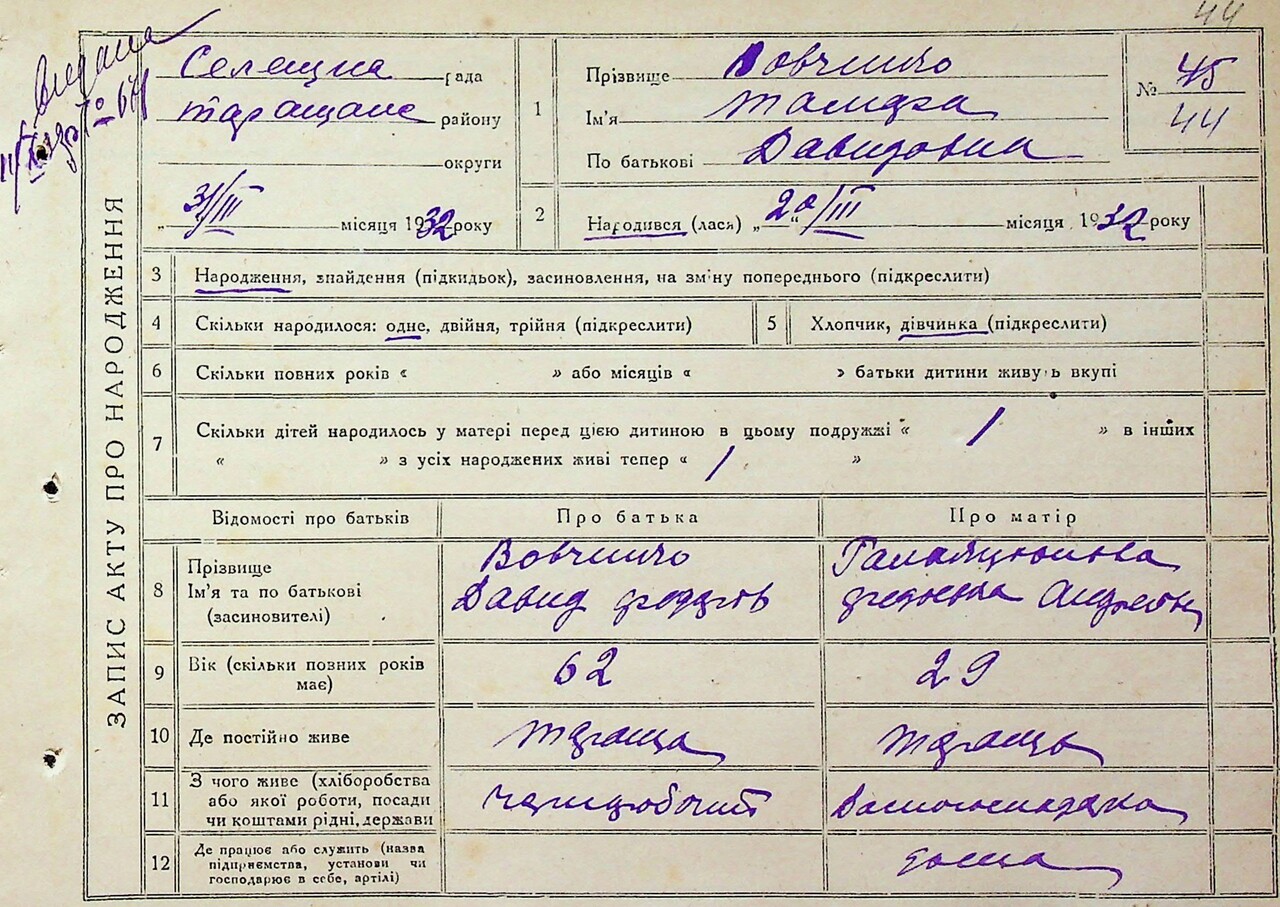 44
Видана
Селещна рада
Таращанс району
округи
„ 31/III місяця 1932 року
1
Прізвище Вовченко
Ім'я Тамара
По батькові Давидовна
№ 45
44
2
Народився (лася) „20/III“ місяця 1932 року
ЗАПИС АКТУ ПРО НАРОДЖЕННЯ
3 Народження, знайдення (підкидьок), засиновлення, на зміну попереднього (підкреслити)
4 Скільки народилося: одне, двійня, трійня (підкреслити)
5 Хлопчик, дівчинка (підкреслити)
6 Скільки повних років « » або місяців « » батьки дитини живуть вкупі
7 Скільки дітей народилось у матері перед цією дитиною в цьому подружжі « 1 » в інших
« » з усіх народжених живі тепер « 1 »
Відомості про батьків Про батька Про матір
8 Прізвище
Ім'я та по батькові
(засиновителі)
Вовченко
Давид
Андреевн
9 Вік (скільки повних років
має)
62 29
10 Де постійно живе Тараща Тараща
11 З чого живе (хліборобства
або якої роботи, посади
чи коштами рідні, держави
чернороботий Домогосподарка
12 Де працює або служить (назва
підприємства, установи чи
господарює в себе, артілі)
дома